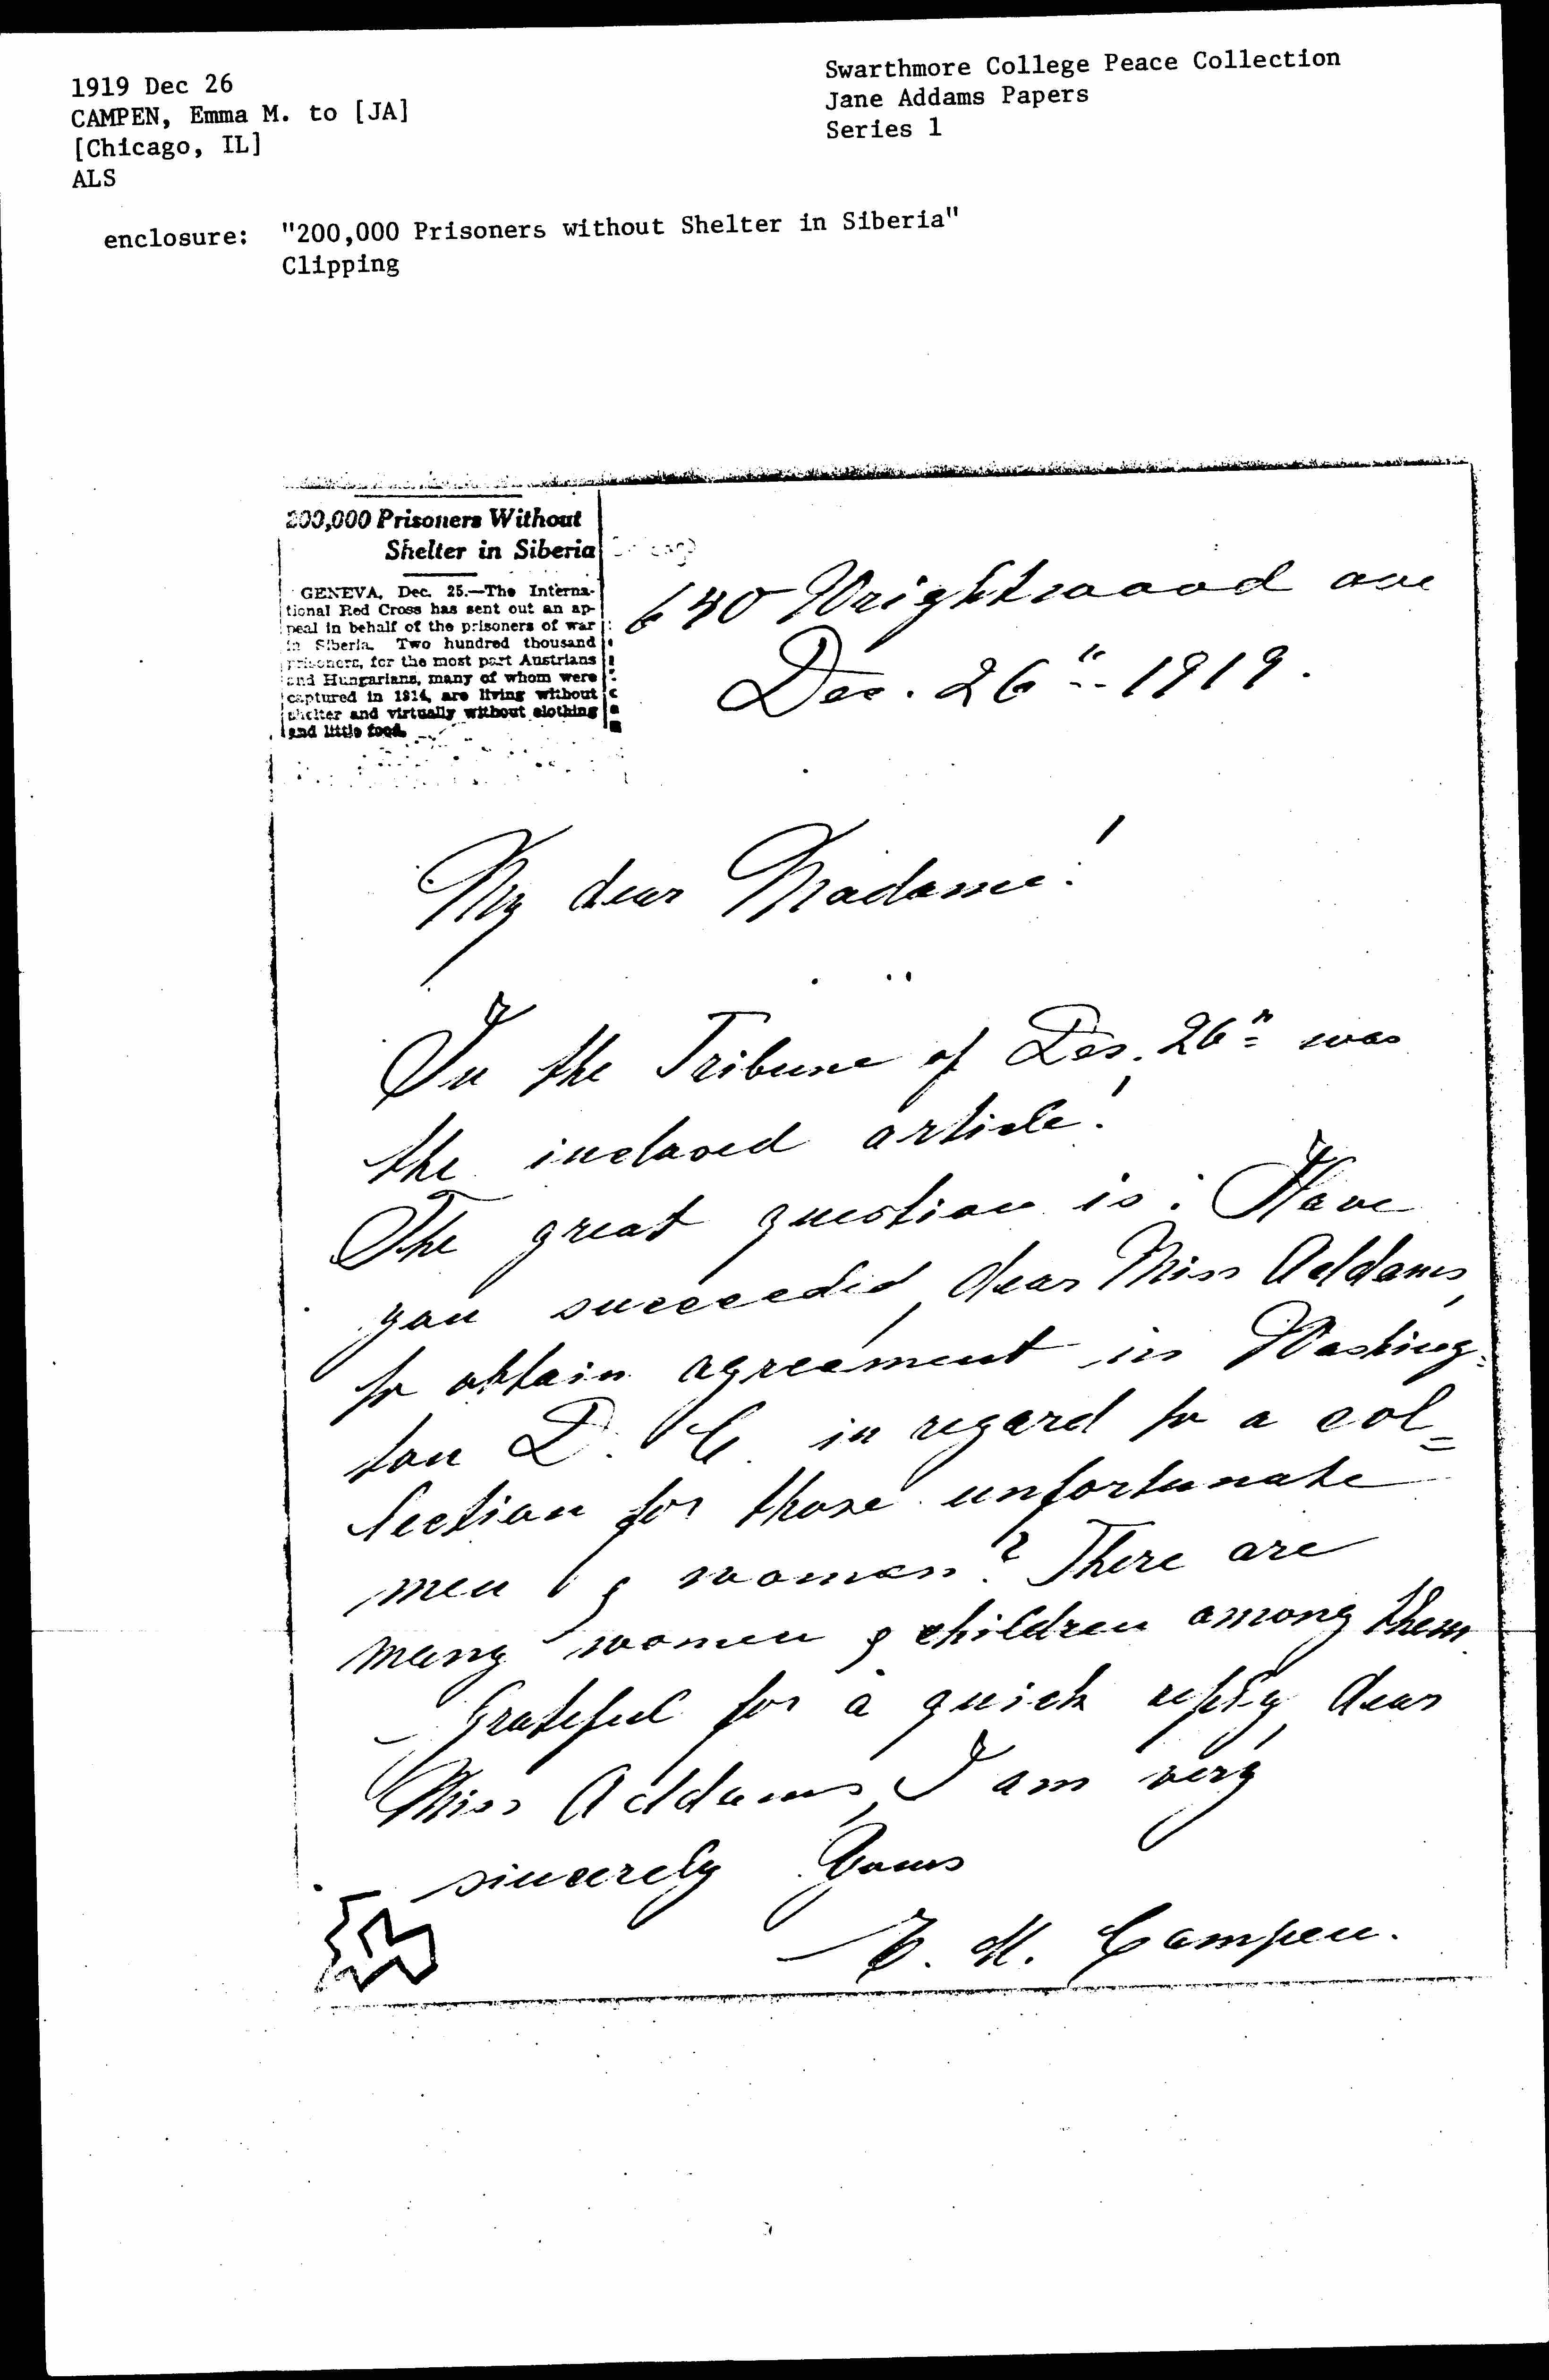 1919 Dec 26
CAMPEN, Emma M. to [JA]
[Chicago, IL]
ALS
Swarthmore College Peace Collection
Jane Addams Papers
Series 1
enclosure: "200,000 Prisoners without Shelter in Siberia"
Clipping
200,000 Prisoners Without
Shelter in Siberia
GENEVA, Dec. 25.—The Interna-
tional Red Cross has sent out an ap-
peal in behalf of the prisoners of war
in Siberia. Two hundred thousand
prisoners, for the most part Austrians
and Hungarians, many of whom were
captured in 1914, are living without
shelter and virtually without clothing
and little food.
640 Wrightwood ave
Dec. 26" 1919.
My dear Madame!
In the Tribune of Des. 26" was
the inclosed article!
The great question is: Have
you succeeded, dear Miss Addams,
to obtain agreement in Washing-
ton D. C. in regard to a col=
lection for those unfortunate
men & women? There are
many women & children among them.
Grateful for a quick reply, dear
Miss Addams, I am very
sincerely Yours
E. M. Campen.